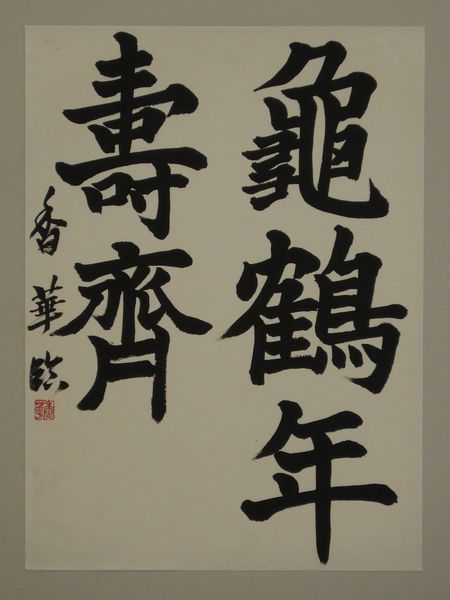 龜鶴年
壽齊
香華臨